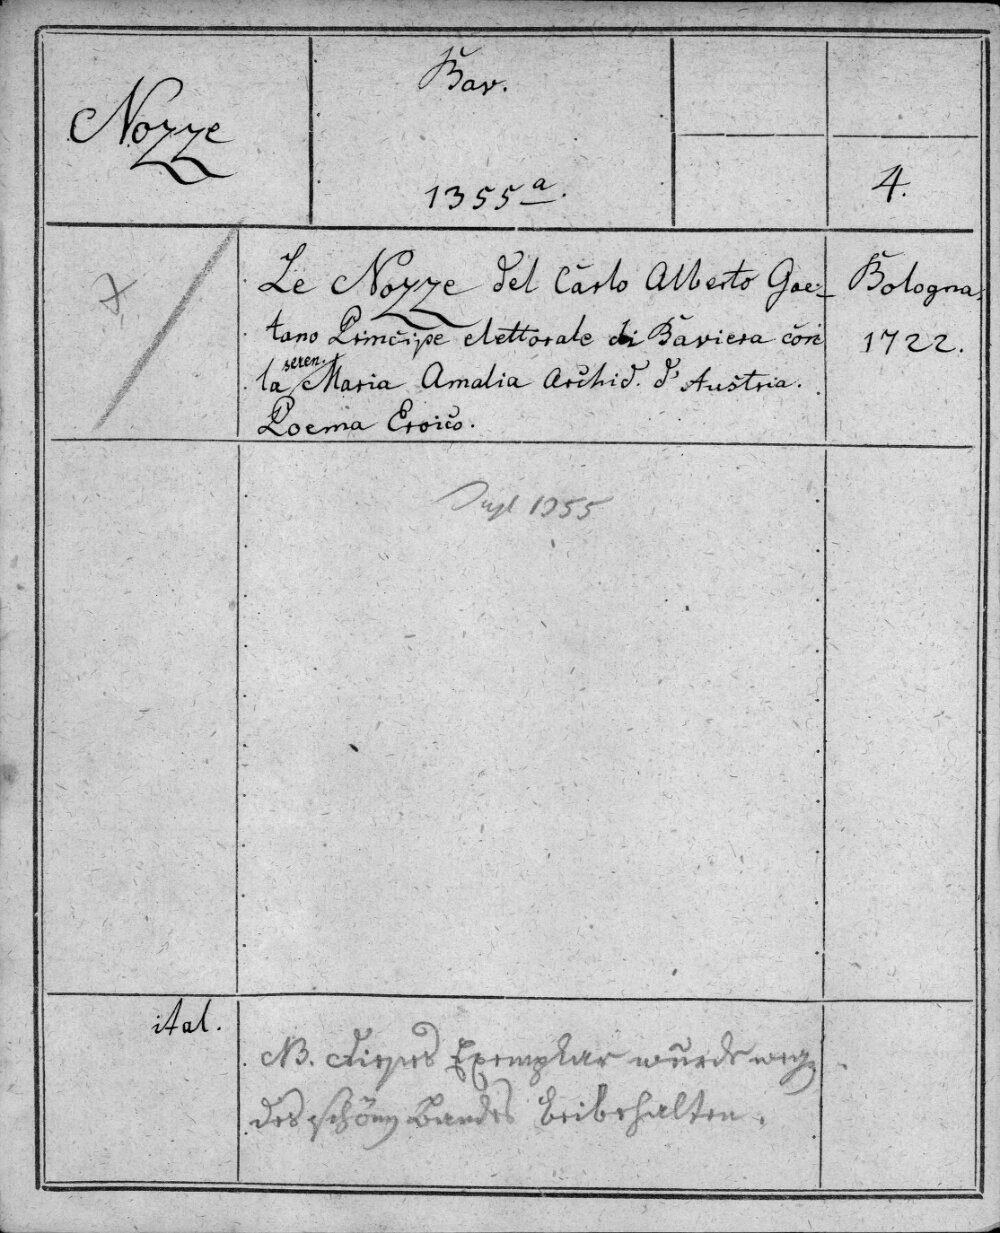 Nozze
Bav.
1355a.
4.
Le Nozze del Carlo Alberto Gae-
tano Principe elettorale di Baviera con
la seren. Maria Amalia Archid. d'Austria.
Poema Eroico.
Bologna.
1722.
Dupl 1355
ital.
NB. Dieses Exemplar wurde weg
des schönen Bandes beibehalten.